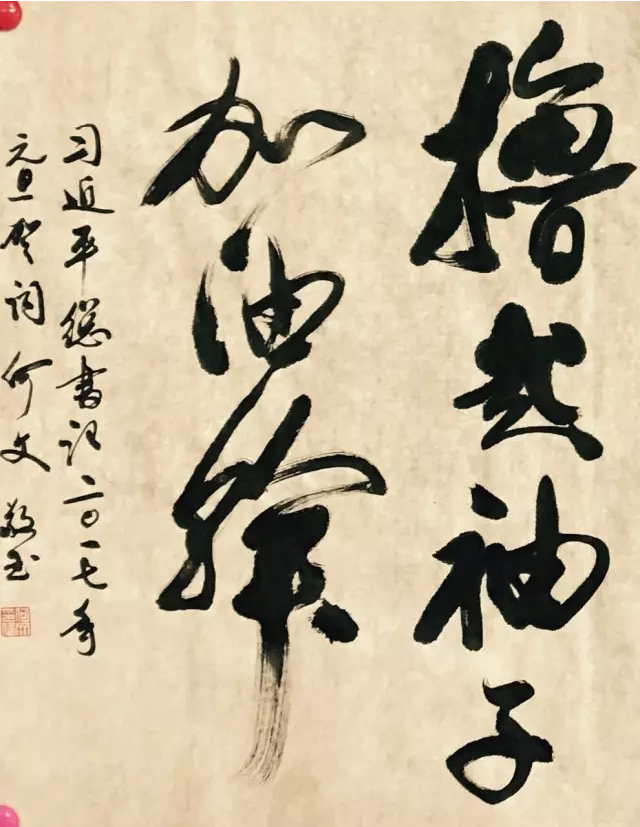 擼起袖子
加油幹
习近平總書记二〇一七年
元旦贺词 何文敬书